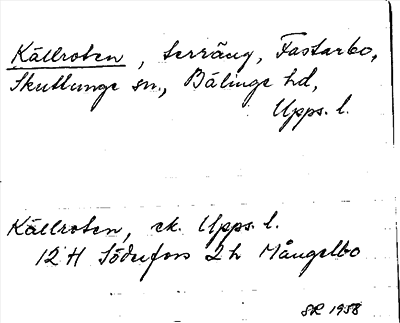 Källroten, terräng, Fastarbo,
Skuttunge sn., Bälinge hd,
Upps. l.
Källroten, ek. Upps. l.
12 H Söderfors 2h Mångelbo
SR 1958